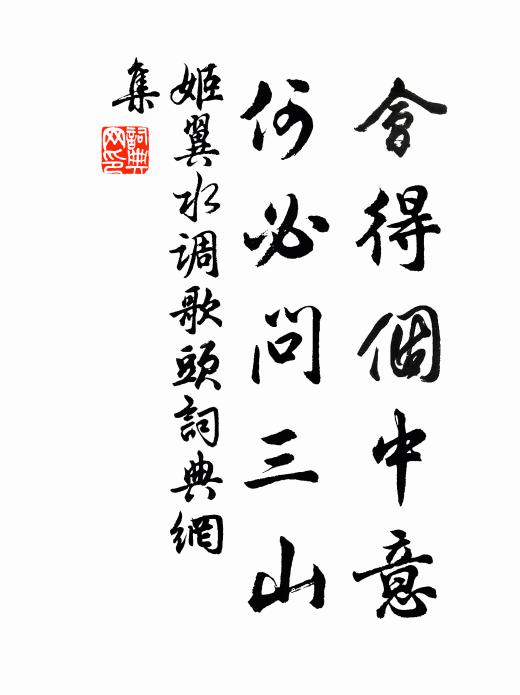 會得個中意
何必問三山
姬翼水调歌頭詞典網
集
詞典網印